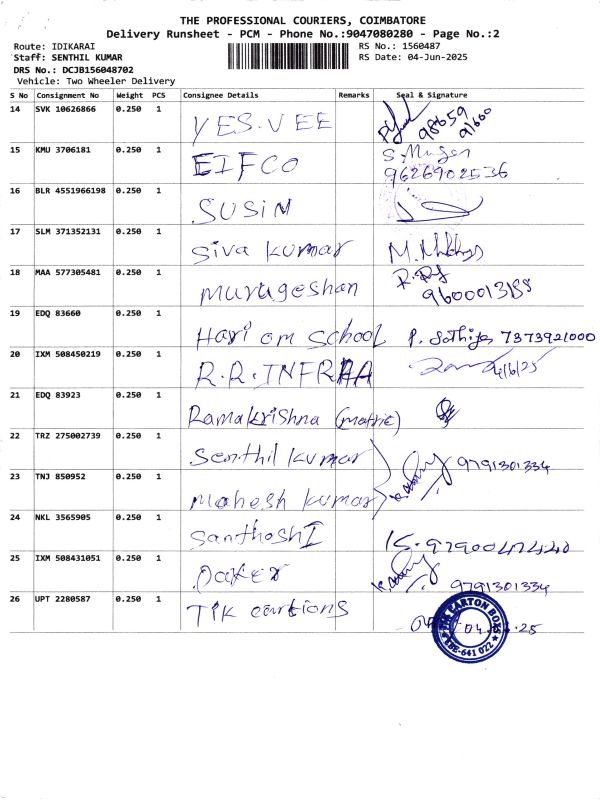 THE PROFESSIONAL COURIERS, COIMBATORE
Delivery Runsheet - PCM - Phone No.:9047080280 - Page No.:2
Route: IDIKARAI RS No.: 1560487
Staff: SENTHIL KUMAR RS Date: 04-Jun-2025
DRS No.: DCJB156048702
Vehicle: Two Wheeler Delivery
S No Consignment No Weight PCS Consignee Details Remarks Seal & Signature
14 SVK 10626866 0.250 1 YES.VEE 98659 91600
15 KMU 3706181 0.250 1 EIFCO 9626902536
16 BLR 4551966198 0.250 1 SUSIN
17 SLM 371352131 0.250 1 Siva kumar
18 MAA 577305481 0.250 1 murugeshan
19 EDQ 83660 0.250 1 Hari om school 7373921000
20 IXM 508450219 0.250 1 R.R.INFRAA 4/6/25
21 EDQ 83923 0.250 1 Ramakrishna (matric)
22 TRZ 275002739 0.250 1 Senthil kumar 9791301334
23 TNJ 850952 0.250 1 Mahesh kumar
24 NKL 3565905 0.250 1 Santhosh
25 IXM 508431051 0.250 1 9791301334
26 UPT 2280587 0.250 1 CARTON BOXS